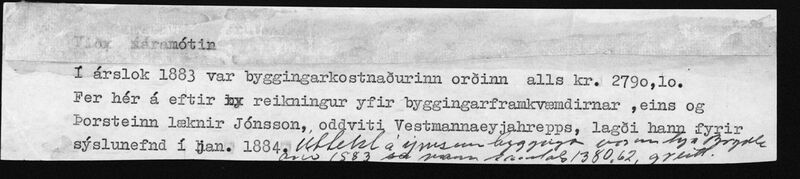 Við áramótin
Í árslok 1883 var byggingarkostnaðurinn orðinn alls kr. 2790,10.
Fer hér á eftir reikningur yfir byggingarframkvæmdirnar ,eins og
Þorsteinn læknir Jónsson,, oddviti Vestmannaeyjahrepps, lagði hann fyrir
sýslunefnd í jan. 1884.
1883 1380,62,